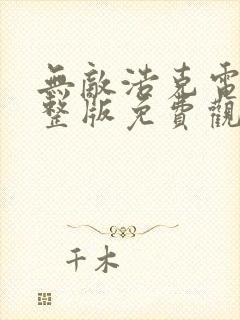 無敵浩克電
整版免費觀
千木